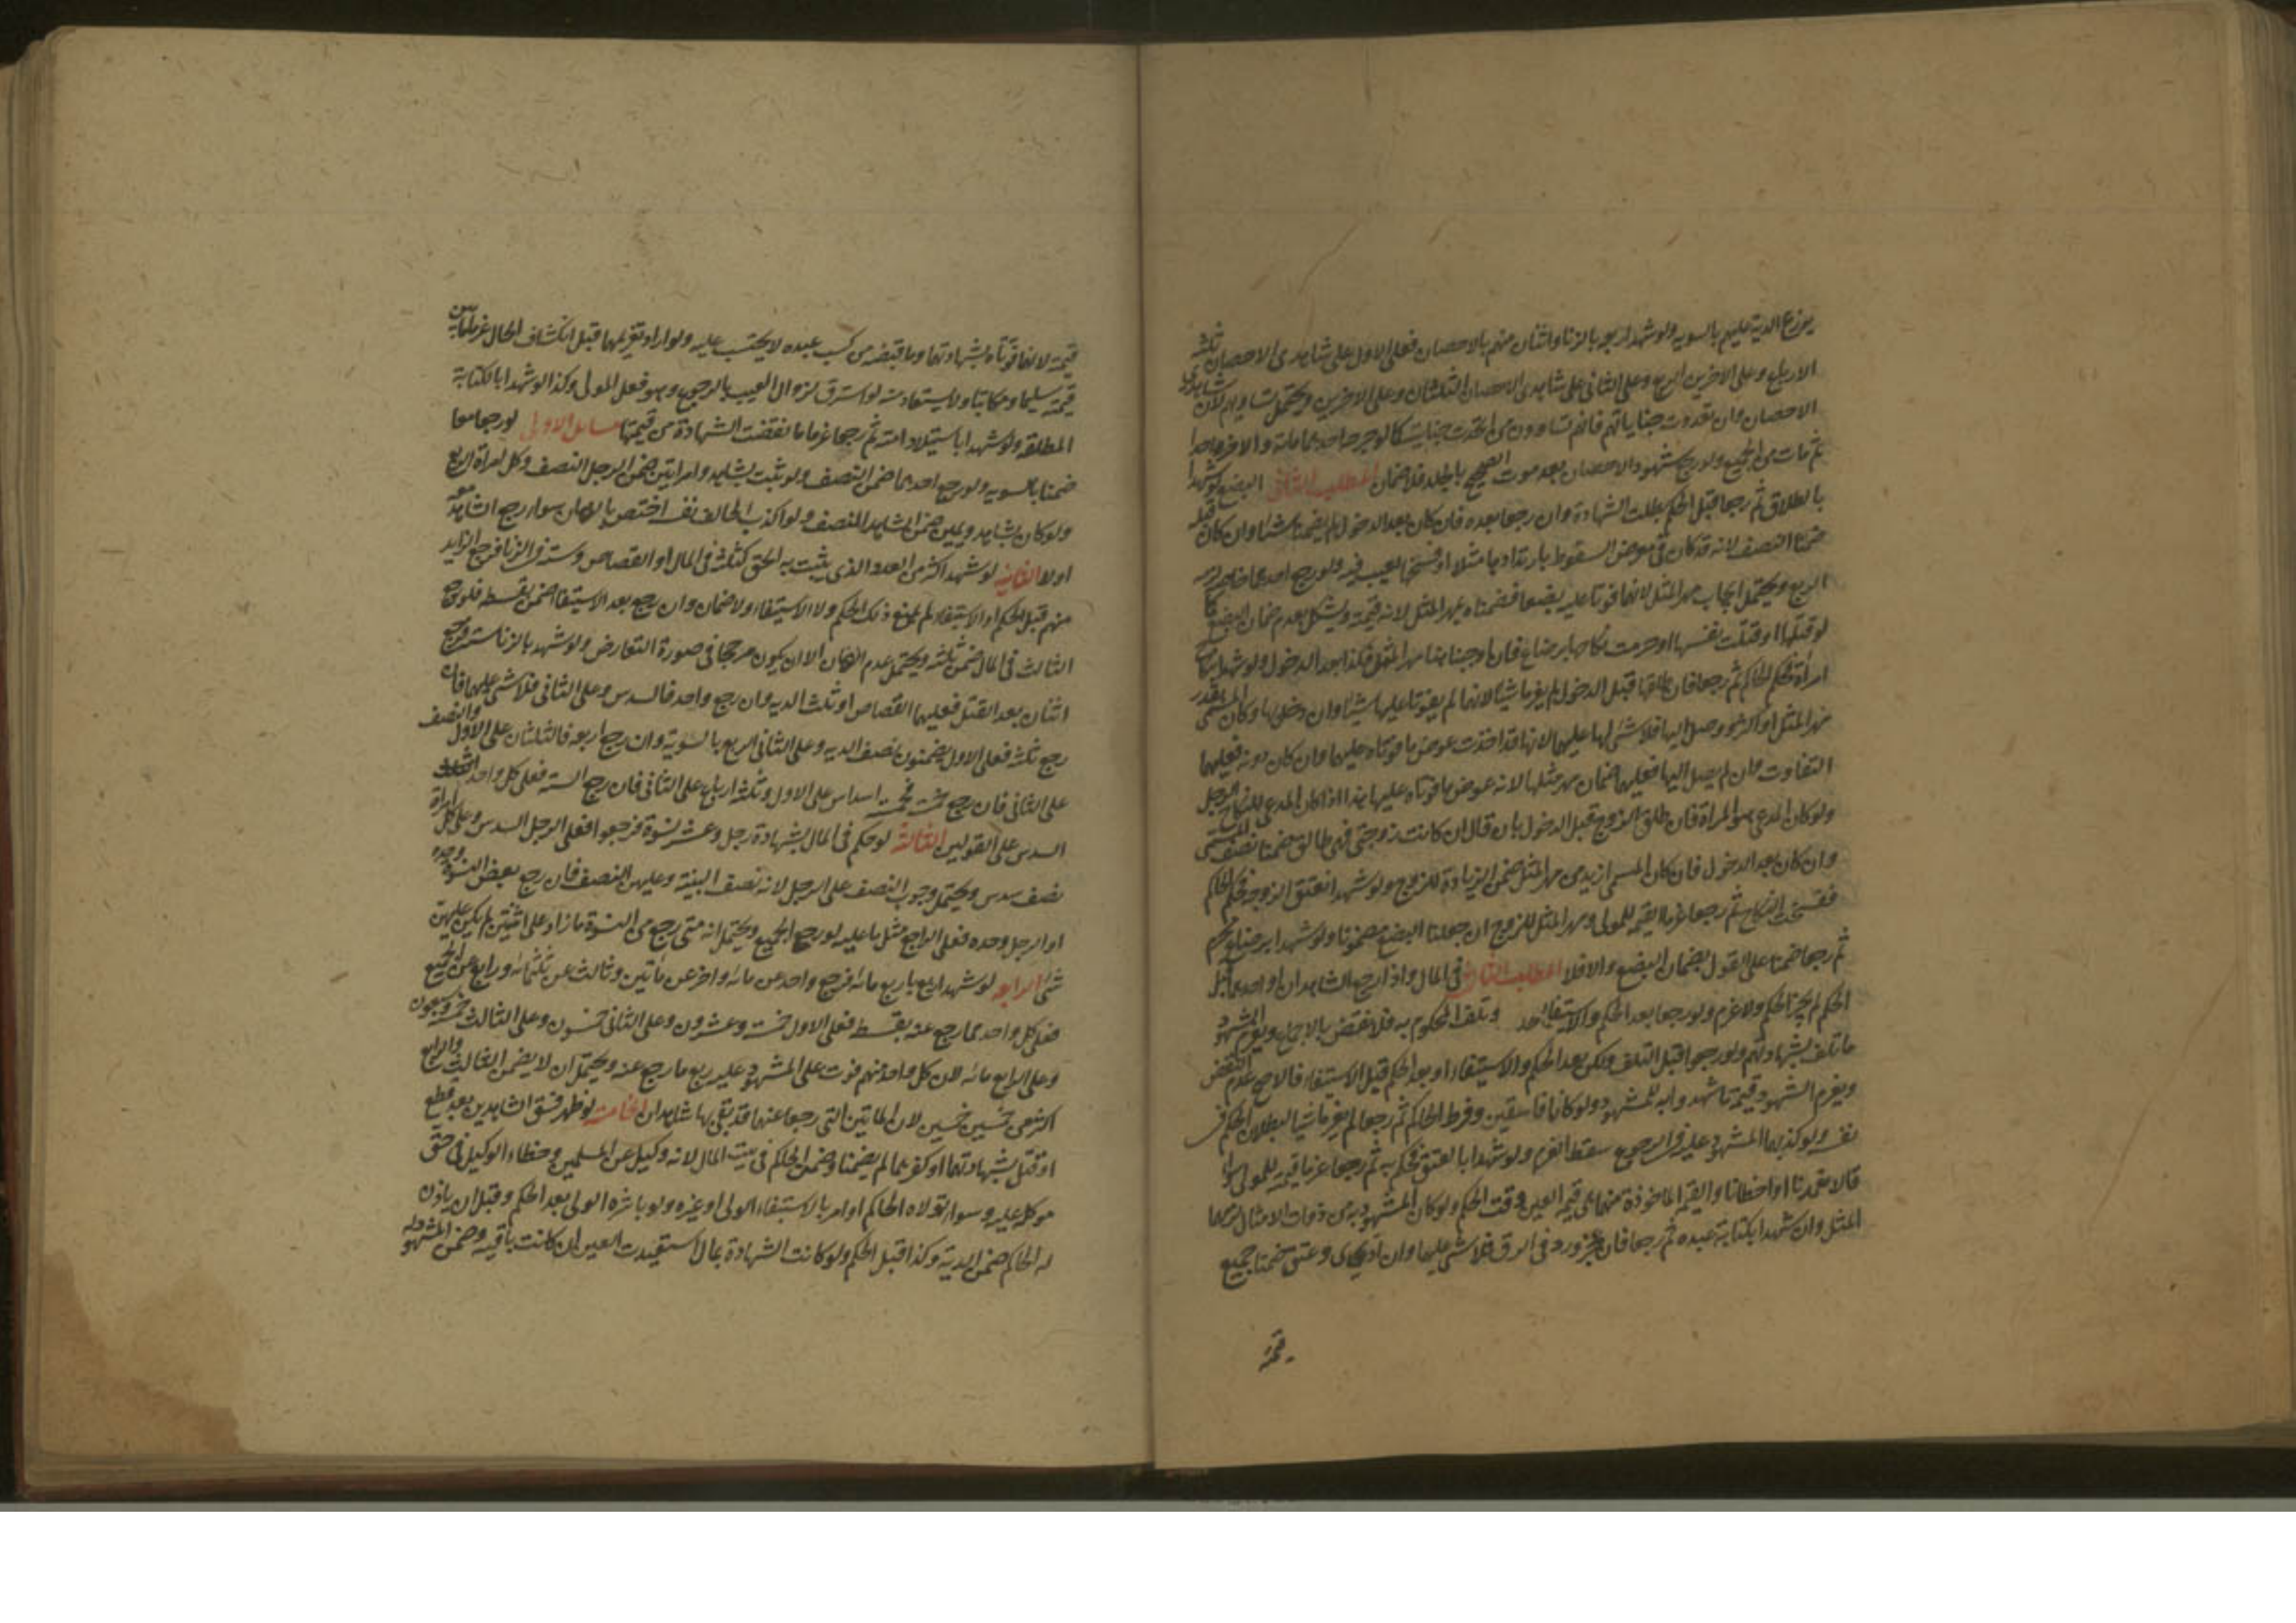 يوزع الدية عليهم بالسوية ولو شهد اربعة بالزنا واثنان منهم بالاحصان فعلى الاول على شاهدى الاحصان ثلثة
الارباع وعلى الاخرين الربع وعلى الثانى على شاهدى الاحصان الثلثان وعلى الاخرين ويحتمل تساويهم لان شاهدى
الاحصان وان تعددت جناياتهم فانهم تساوون من اتحدت جنايته كما لو جرحه احدهما مائة والاخر واحدا
ثم مات من الجميع ولو رجع شهود الاحصان بعد موت الصحيح بالجلد فلا ضمان المطلب الثانى البضع لو شهدا
بالطلاق ثم رجعا قبل الحكم بطلت الشهادة وان رجعا بعده فان كان بعد الدخول لم يضمنا شيئا وان كان قبله
ضمنا النصف لانه قد كان فى معرض السقوط بارتدادها مثلا او فسخها لعيب فيه ولو رجع احدهما
الربع ويحتمل ايجاب مهر المثل لانهما فوتا عليه بضعها فضمناه مهر المثل لانه قيمته ويشكل بعدم ضمان البضع كما
لو قتلها او قتلت نفسها او حرمت نكاحها برضاع فان اوجبنا هنا مهر المثل فكذا بعد الدخول ولو شهدا بنكاح
امرأة فحكم الحاكم ثم رجعا فان طلقها قبل الدخول لم يغرما شيئا لانهما لم يفوتا عليها شيئا وان دخل بها وكان المسمى بقدر
مهر المثل او اكثر ووصل اليها فلا شىء لها عليهما لانها قد اخذت عوض ما فوتاه عليها وان كان دونه فعليهما
التفاوت وان لم يصل اليها فعليهما ضمان مهر مثلها لانه عوض ما فوتاه عليها هذا اذا كان المدعى للنكاح الرجل
ولو كان المدعى هو المرأة فان طلق الزوج قبل الدخول بان قال ان كانت زوجتى فهى طالق ضمنا نصف المسمى
وان كان بعد الدخول فان كان المسمى ازيد من مهر المثل ضمن الزيادة للزوج ولو شهدا بعتق الزوجة فحكم الحاكم
ففسخت النكاح ثم رجعا غرما القيمة للمولى ومهر المثل للزوج ان جعلنا البضع مضمونا ولو شهدا برضاع محرم
ثم رجعا ضمنا على القول بضمان البضع والا فلا المطلب الثالث فى المال واذا رجع الشاهدان او احدهما قبل
الحكم لم يجز الحكم ولا غرم ولو رجعا بعد الحكم والاستيفاء وتلف المحكوم به فلا نقض بالاجماع ويغرم الشهود
ما تلف بشهادتهم ولو رجعوا قبل التلف ولكن بعد الحكم والاستيفاء او بعد الحكم قبل الاستيفاء فالاصح عدم النقض
ويغرم الشهود قيمة ما شهدوا به للمشهود ولو كانا فاسقين وفرط الحاكم ثم رجعا لم يغرما شيئا لبطلان الحكم فى
نفسه ولو كذبهما المشهود عليه فى الرجوع سقط الغرم ولو شهدا بالعتق فحكم به ثم رجعا غرما قيمته للمولى سواء
قالا تعمدنا او اخطانا والقيمة الماخوذة منهما هى قيمة العين وقت الحكم ولو كان المشهود به من ذوات الامثال
المثل وان شهدا بكتابة عبده ثم رجعا فان عجز ورد فى الرق فلا شىء عليهما وان ادى وعتق ضمنا جميع
قيمته
قيمته لانهما فوتاه بشهادتهما وما قبضه من كسب عبده لا يحتسب عليه ولو اراد تغريمهما قبل انكشاف الحال غرما ما بين
قيمته سليما ومكاتبا ولا يستعاد منه لو استرق لزوال العيب بالرجوع وهو فعل المولى وكذا لو شهدا بالكتابة
المطلقة ولو شهدا باستيلاد امته ثم رجعا غرما ما نقضت الشهادة من قيمتها مسائل الاولى لو رجعا معا
ضمنا بالسوية ولو رجع احدهما ضمن النصف ولو ثبت بشاهد وامراتين ضمن الرجل النصف وكل امرأة الربع
ولو كان بشاهد ويمين ضمن الشاهد النصف ولو اكذب الحالف نفسه اختص بالضمان سواء رجع الشاهد معه
اولا الثانية لو شهد اكثر من العدد الذى يثبت به الحق كثلثة فى المال او القصاص وستة فى الزنا فرجع الزايد
منهم قبل الحكم او الاستيفاء لم يمنع ذلك الحكم ولا الاستيفاء ولا ضمان وان رجع بعد الاستيفا ضمن بقسطه فلو رجع
الثالث فى المال ضمن ثلثه ويحتمل عدم الضمان الا ان يكون مرجحا فى صورة التعارض ولو شهد بالزنا ستة فرجع
اثنان بعد القتل فعليهما القصاص او ثلث الدية وان رجع واحد فالسدس وعلى الثانى فلا شىء عليهما فان
رجع ثلثة فعلى الاول يضمنون نصف الدية وعلى الثانى الربع بالسوية وان رجع اربعة فالثلثان على الاول والنصف
على الثانى فان رجع خمسة فخمسة اسداس على الاول وثلثة ارباع على الثانى فان رجع الستة فعلى كل واحد
السدس على القولين الثالثة لو حكم فى المال بشهادة رجل وعشر نسوة فرجعوا فعلى الرجل السدس وعلى كل امرأة
نصف سدس ويحتمل وجوب النصف على الرجل لانه نصف البينة وعليهن النصف فان رجع بعض النسوة وحده
او الرجل وحده فعلى الراجع مثل ما عليه لو رجع الجميع ويحتمل انه متى رجع من النسوة ما زاد على اثنتين لم يكن عليهن
شىء الرابعة لو شهد اربعة باربع مائة فرجع واحد عن مائة واخر عن مأتين وثالث عن ثلثمائة ورابع عن الجميع
فعلى كل واحد مما رجع عنه بقسطه فعلى الاول خمسة وعشرون وعلى الثانى خمسون وعلى الثالث خمسة وسبعون
وعلى الرابع مائة لان كل واحد منهم فوت على المشهود عليه ربع ما رجع عنه ويحتمل ان لا يضمن الثالث والرابع
اكثر من خمسين خمسين لان المائتين التى رجعا عنهما قد بقى بها شاهدان الخامسة لو ظهر فسق الشاهدين بعد قطع
او قتل بشهادتهما او كفرهما لم يضمنا وضمن الحاكم فى بيت المال لانه وكيل عن المسلمين وخطاء الوكيل فى حق
موكله عليه وسواء تولاه الحاكم او امر بالاستيفاء الولى او غيره ولو باشره الولى بعد الحكم وقبل ان ياذن
له الحاكم ضمن الدية وكذا قبل الحكم ولو كانت الشهادة بمال استعيدت العين ان كانت باقية وضمن المشهود له